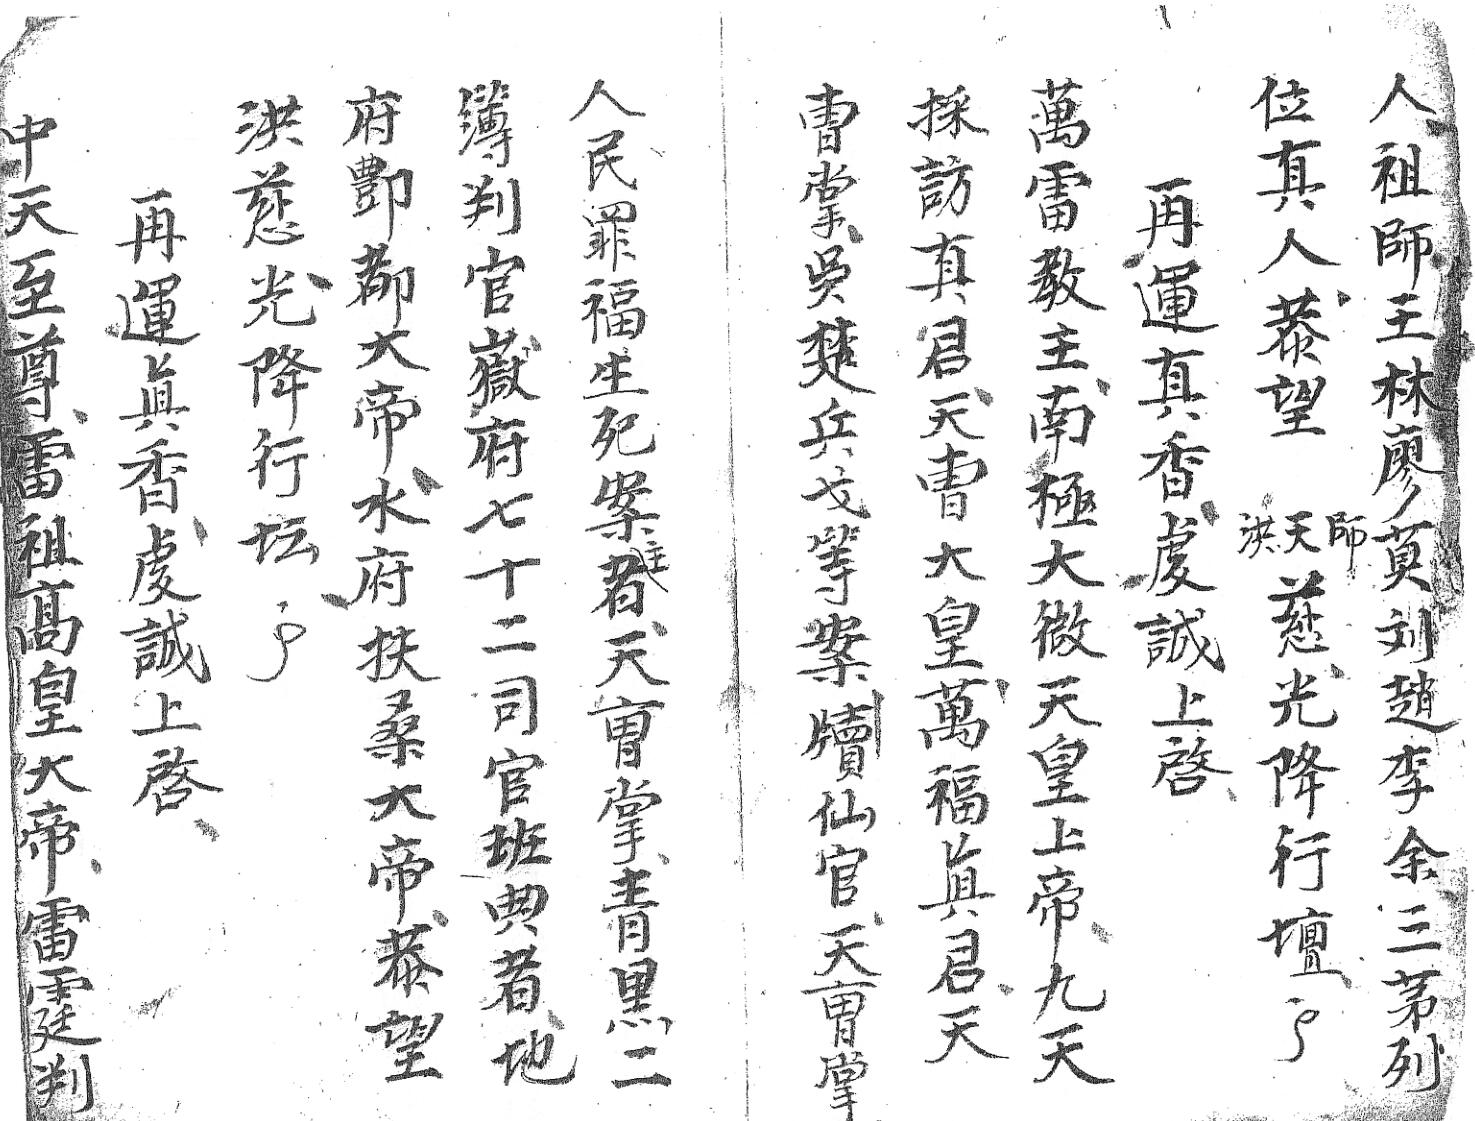 人祖師王林廖莫刘趙李余三茅列
位真人恭望 師天洪慈光降行壇
再運真香虔誠上啓
萬雷教主南極大微天皇上帝九天
採訪真君天曹大皇萬福眞君天
曹掌吳楚兵戈等案牘仙官天曹掌
人民罪福生死案主者天曹掌青黑二
簿判官嶽府七十二司官班典者地
府酆都大帝水府扶桑大帝恭望
洪慈光降行坛
再運眞香虔誠上啓
中天至尊雷祖高皇大帝雷霆判